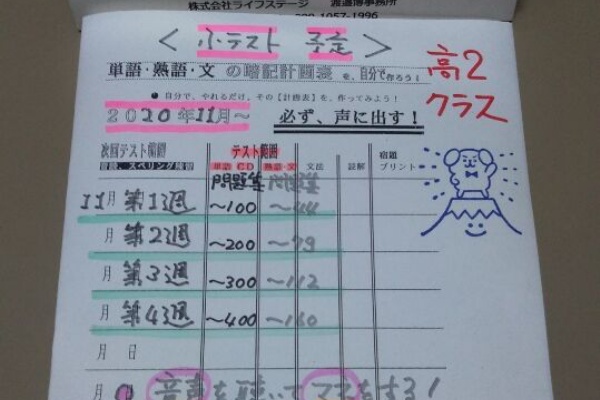 株式会社ライフステージ 渡邉博事務所
1057-1996
< 小テスト 予定 >
単語・熟語・文 の暗記計画表 を、自分で作ろう!
高2
クラス
● 自分で、やれるだけ、その【計画表】を、作ってみよう!
2020年11月～ 必ず、声に出す!
次回テスト範囲 テスト範囲 宿題
単語 CD 熟語・文 文法 読解 プリント
問題集 問題集
11月 第1週 ～100 ～44
月 第2週 ～200 ～79
月 第3週 ～300 ～112
月 第4週 ～400 ～160
月 日
月 音声を聴いてマネをする!